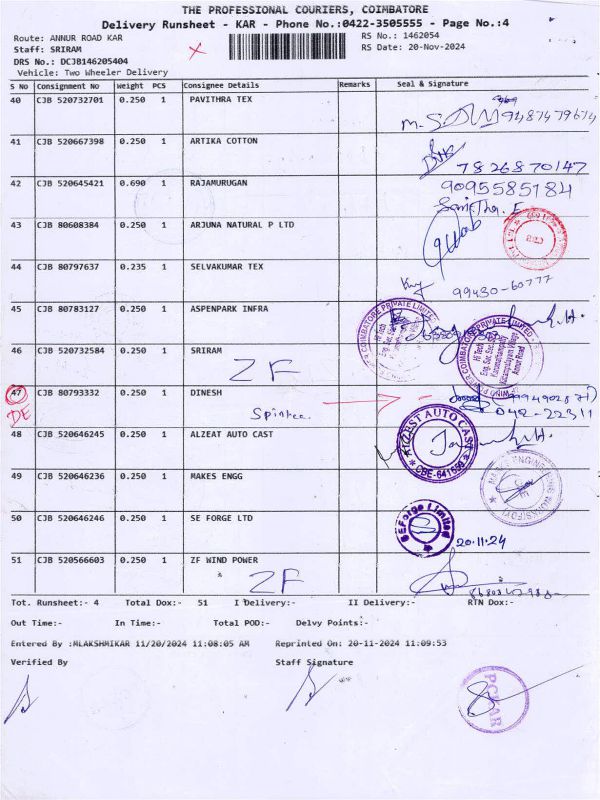 THE PROFESSIONAL COURIERS, COIMBATORE
Delivery Runsheet - KAR - Phone No.:0422-3505555 - Page No.:4
Route: ANNUR ROAD KAR
RS No.: 1462054
Staff: SRIRAM
RS Date: 20-Nov-2024
DRS No.: DCJB146205404
Vehicle: Two Wheeler Delivery
S No Consignment No Weight PCS Consignee Details Remarks Seal & Signature
40 CJB 520732701 0.250 1 PAVITHRA TEX
9487479674
41 CJB 520667398 0.250 1 ARTIKA COTTON
7826870147
42 CJB 520645421 0.690 1 RAJAMURUGAN 9095585184
43 CJB 80608384 0.250 1 ARJUNA NATURAL P LTD
44 CJB 80797637 0.235 1 SELVAKUMAR TEX
99430-60777
45 CJB 80783127 0.250 1 ASPENPARK INFRA
46 CJB 520732584 0.250 1 SRIRAM
ZF
47 CJB 80793332 0.250 1 DINESH
DE
042-22311
48 CJB 520646245 0.250 1 ALZEAT AUTO CAST
CBE-641659
49 CJB 520646236 0.250 1 MAKES ENGG
50 CJB 520646246 0.250 1 SE FORGE LTD
SEForge Limited
20.11.24
51 CJB 520566603 0.250 1 ZF WIND POWER
ZF
Tot. Runsheet:- 4 Total Dox:- 51 I Delivery:- II Delivery:- RTN Dox:-
Out Time:- In Time:- Total POD:- Delvy Points:-
Entered By :MLAKSHMIKAR 11/20/2024 11:08:05 AM Reprinted On: 20-11-2024 11:09:53
Verified By Staff Signature
PCKAR